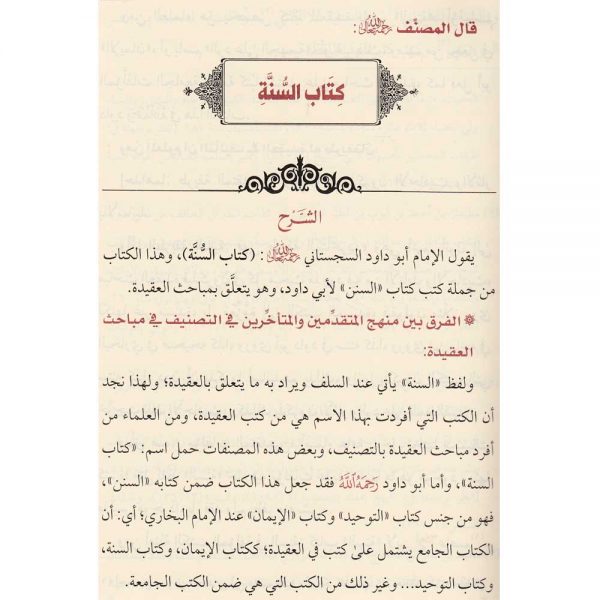 قال المصنّف رَحِمَهُ اللهُ:
كِتَاب السُّنَّةِ
الشَّرح
يقول الإمام أبو داود السجستاني رَحِمَهُ اللهُ: (كتاب السُّنة)، وهذا الكتاب
من جملة كتب كتاب «السنن» لأبي داود، وهو يتعلَّق بمباحث العقيدة.
* الفرق بين منهج المتقدِّمين والمتأخِّرين في التصنيف في مباحث
العقيدة:
ولفظ «السنة» يأتي عند السلف ويراد به ما يتعلق بالعقيدة؛ ولهذا نجد
أن الكتب التي أفردت بهذا الاسم هي من كتب العقيدة، ومن العلماء من
أفرد مباحث العقيدة بالتصنيف، وبعض هذه المصنفات حمل اسم: «كتاب
السنة»، وأما أبو داود رَحِمَهُ ٱللَّهُ فقد جعل هذا الكتاب ضمن كتابه «السنن»،
فهو من جنس كتاب «التوحيد» وكتاب «الإيمان» عند الإمام البخاري؛ أي: أن
الكتاب الجامع يشتمل علىٰ كتب في العقيدة؛ ككتاب الإيمان، وكتاب السنة،
وكتاب التوحيد... وغير ذلك من الكتب التي هي ضمن الكتب الجامعة.